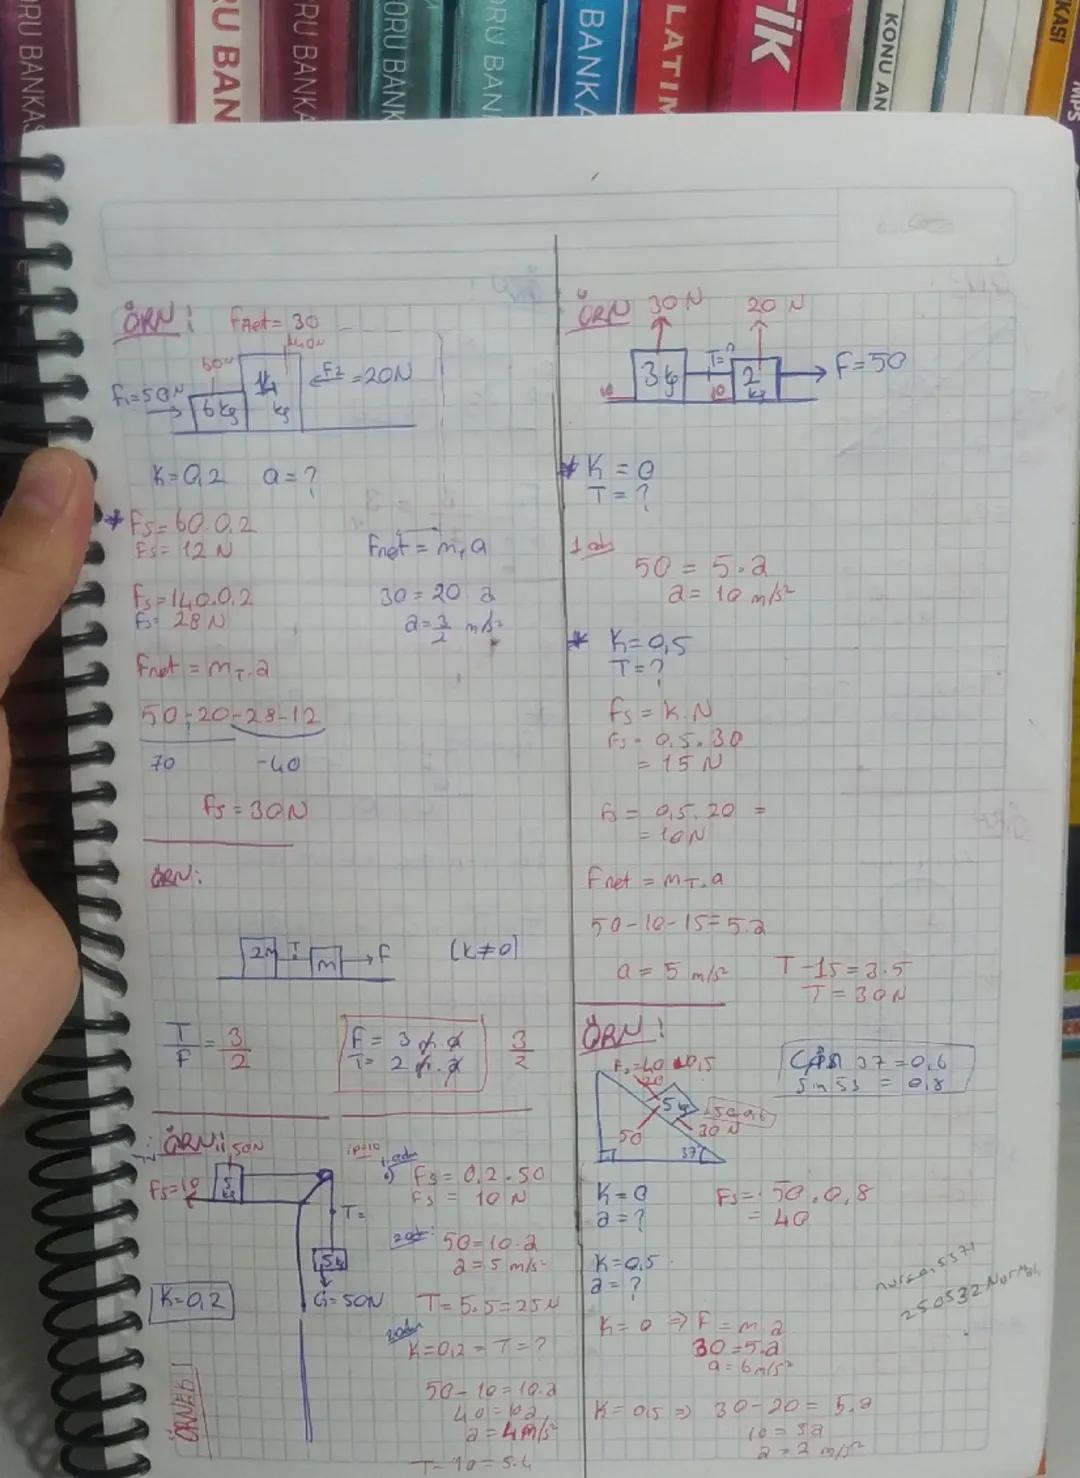 ORU BANKAS
RU BAN
ORU BANKAS
ORU BANK
ORU BANI
BANKA
LATIN
TİK
KONU AN
KASI
IMPS
ÖRN:
Fnet = 30
60N
140N
F1=50N
6kg
14 kg
F2 =20N
K=0,2 a=?
* Fs=60.0,2
Fs=12N
Fs=140.0,2
Fs= 28N
Fnet = mT.a
50-20-28-12
70 -40
Fs=30N
Fnet = mT a
30=20 a
a=3/2 m/s²
ÖRN:
2m T m F (K≠0)
T/F = 3/2
F= 3 m.a
T= 2 m.a
3/2
ÖRN:
50N
Fs=10
5 kg
T=
5kg
G=50N
K=0,2
ÖRNEK!
ip=10
Fs=0,2.50
Fs= 10N
50=10.a
a=5 m/s²
T=5.5=25N
K=0,2 = T=?
50-10=10.a
40=10a
a=4m/s²
T-10=5.4
ÖRN
30N 20N
3kg T=? 2 kg F=50
10 10
* K=0
T=?
50=5.a
a=10 m/s²
* K=0,5
T=?
Fs=K.N
Fs=0,5.30
=15N
Fs= 0,5.20 =
=10N
Fnet=mT.a
50-10-15=5.a
a=5 m/s²
T-15=3.5
T=30N
ÖRN:
Fs=40 0,5
20
5kg
50.0,6
30N
50
37
37=0,6
Sin 53 = 0,8
K=0
a=?
Fs= 50.0,8
=40
K=0,5
a=?
K=0 ⇒ F=m.a
30=5.a
a=6m/s²
K=0,5 ⇒ 30-20=5.a
10=5a
a=2 m/s²